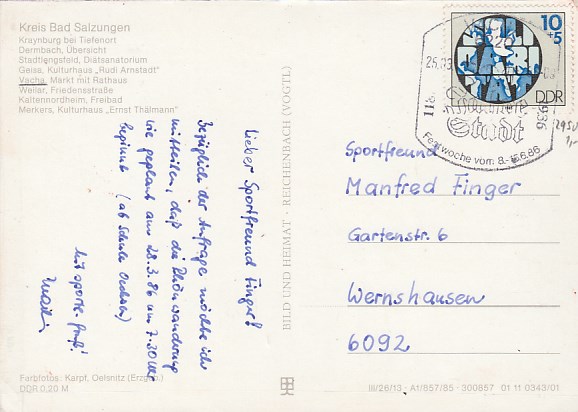 Kreis Bad Salzungen
Kraynburg bei Tiefenort
Dermbach, Übersicht
Stadtlengsfeld, Diätsanatorium
Geisa, Kulturhaus „Rudi Arnstadt"
Vacha, Markt mit Rathaus
Weilar, Friedensstraße
Kaltennordheim, Freibad
Merkers, Kulturhaus „Ernst Thälmann"
Lieber Sportfreund Finger!
Bezüglich der Anfrage möchte ich
mitteilen, daß die Rhönwanderung
wie geplant am 28.3.86 um 7.30 Uhr
beginnt (ab Schule
Mit sportl. Gruß!
Farbfotos: Karpf, Oelsnitz (Erzgeb.)
DDR 0,20 M
BILD UND HEIMAT · REICHENBACH (VOGTL)
10
+5
DDR
VACHA
6220
1186
1986
Stadt
Festwoche vom: 8.-15.6.86
Sportfreund
Manfred Finger
Gartenstr. 6
Wernshausen
6092
III/26/13 · A1/857/85 · 300857 01 11 0343/01